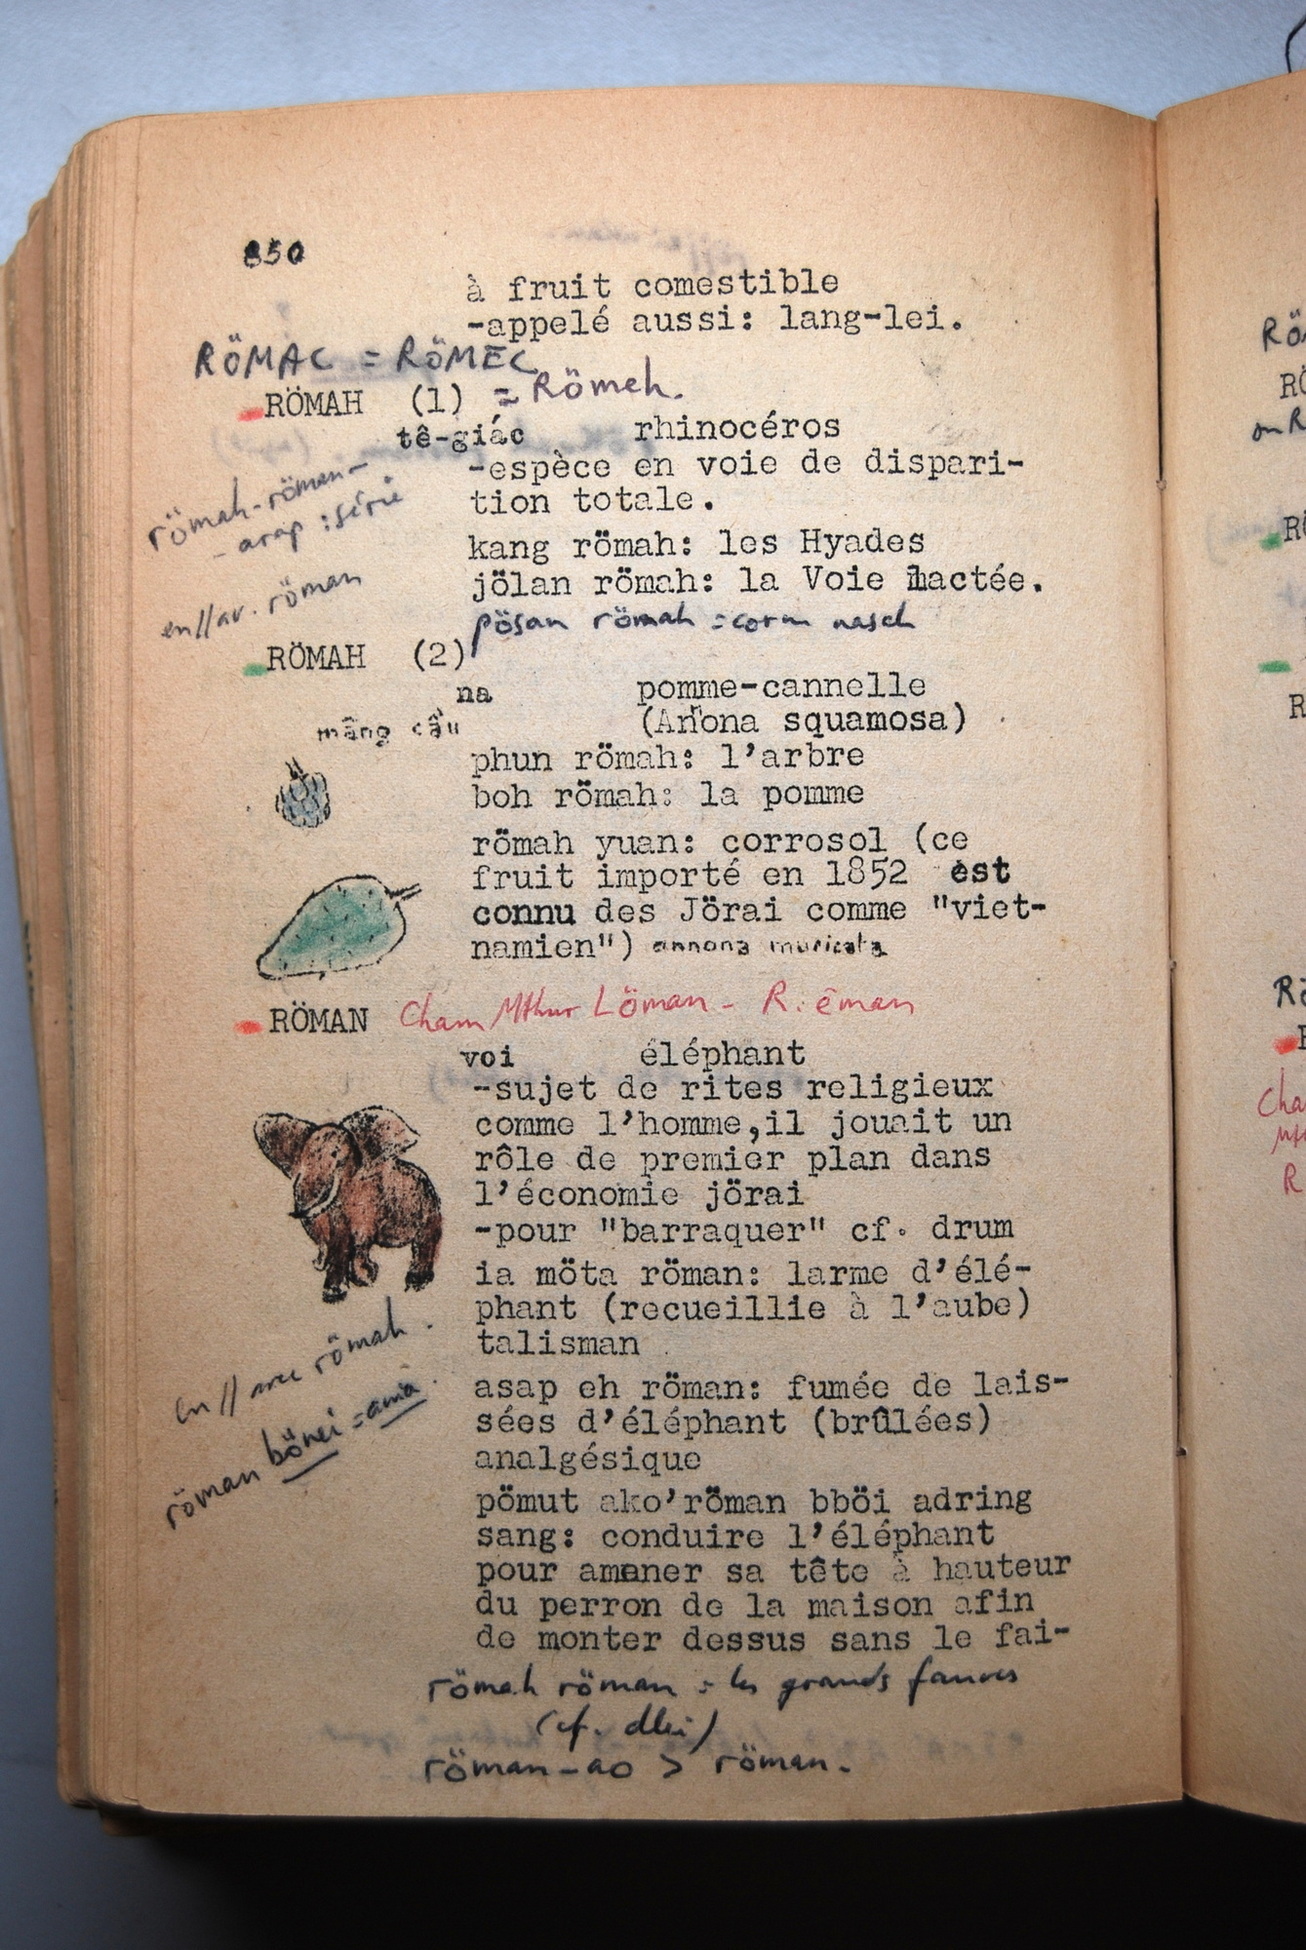 850
à fruit comestible
-appelé aussi: lang-lei.
RÖMAC = RÖMEC
RÖMAH (1) = Römeh.
tê-giác rhinocéros
-espèce en voie de dispari-
tion totale.
römah-röman-
- arap : série
kang römah: les Hyades
jölan römah: la Voie lactée.
en // av. röman
pösan römah = corne nasale
RÖMAH (2)
na pomme-cannelle
mãng cầu (Anona squamosa)
phun römah: l'arbre
boh römah: la pomme
römah yuan: corrosol (ce
fruit importé en 1852 est
connu des Jörai comme "viet-
namien") annona muricata
RÖMAN Cham Mthur Löman - R. ēman
voi éléphant
-sujet de rites religieux
comme l'homme,il jouait un
rôle de premier plan dans
l'économie jörai
-pour "barraquer" cf. drum
ia möta röman: larme d'élé-
phant (recueillie à l'aube)
talisman
en // avec römah.
asap eh röman: fumée de lais-
sées d'éléphant (brûlées)
analgésique
röman bönei = ama
pömut ako'röman bböi adring
sang: conduire l'éléphant
pour amener sa tête à hauteur
du perron de la maison afin
de monter dessus sans le fai-
römah röman = les grands fauves
(cf. dlei)
röman-ao > röman.
RÖ
on R
R
Cha
R